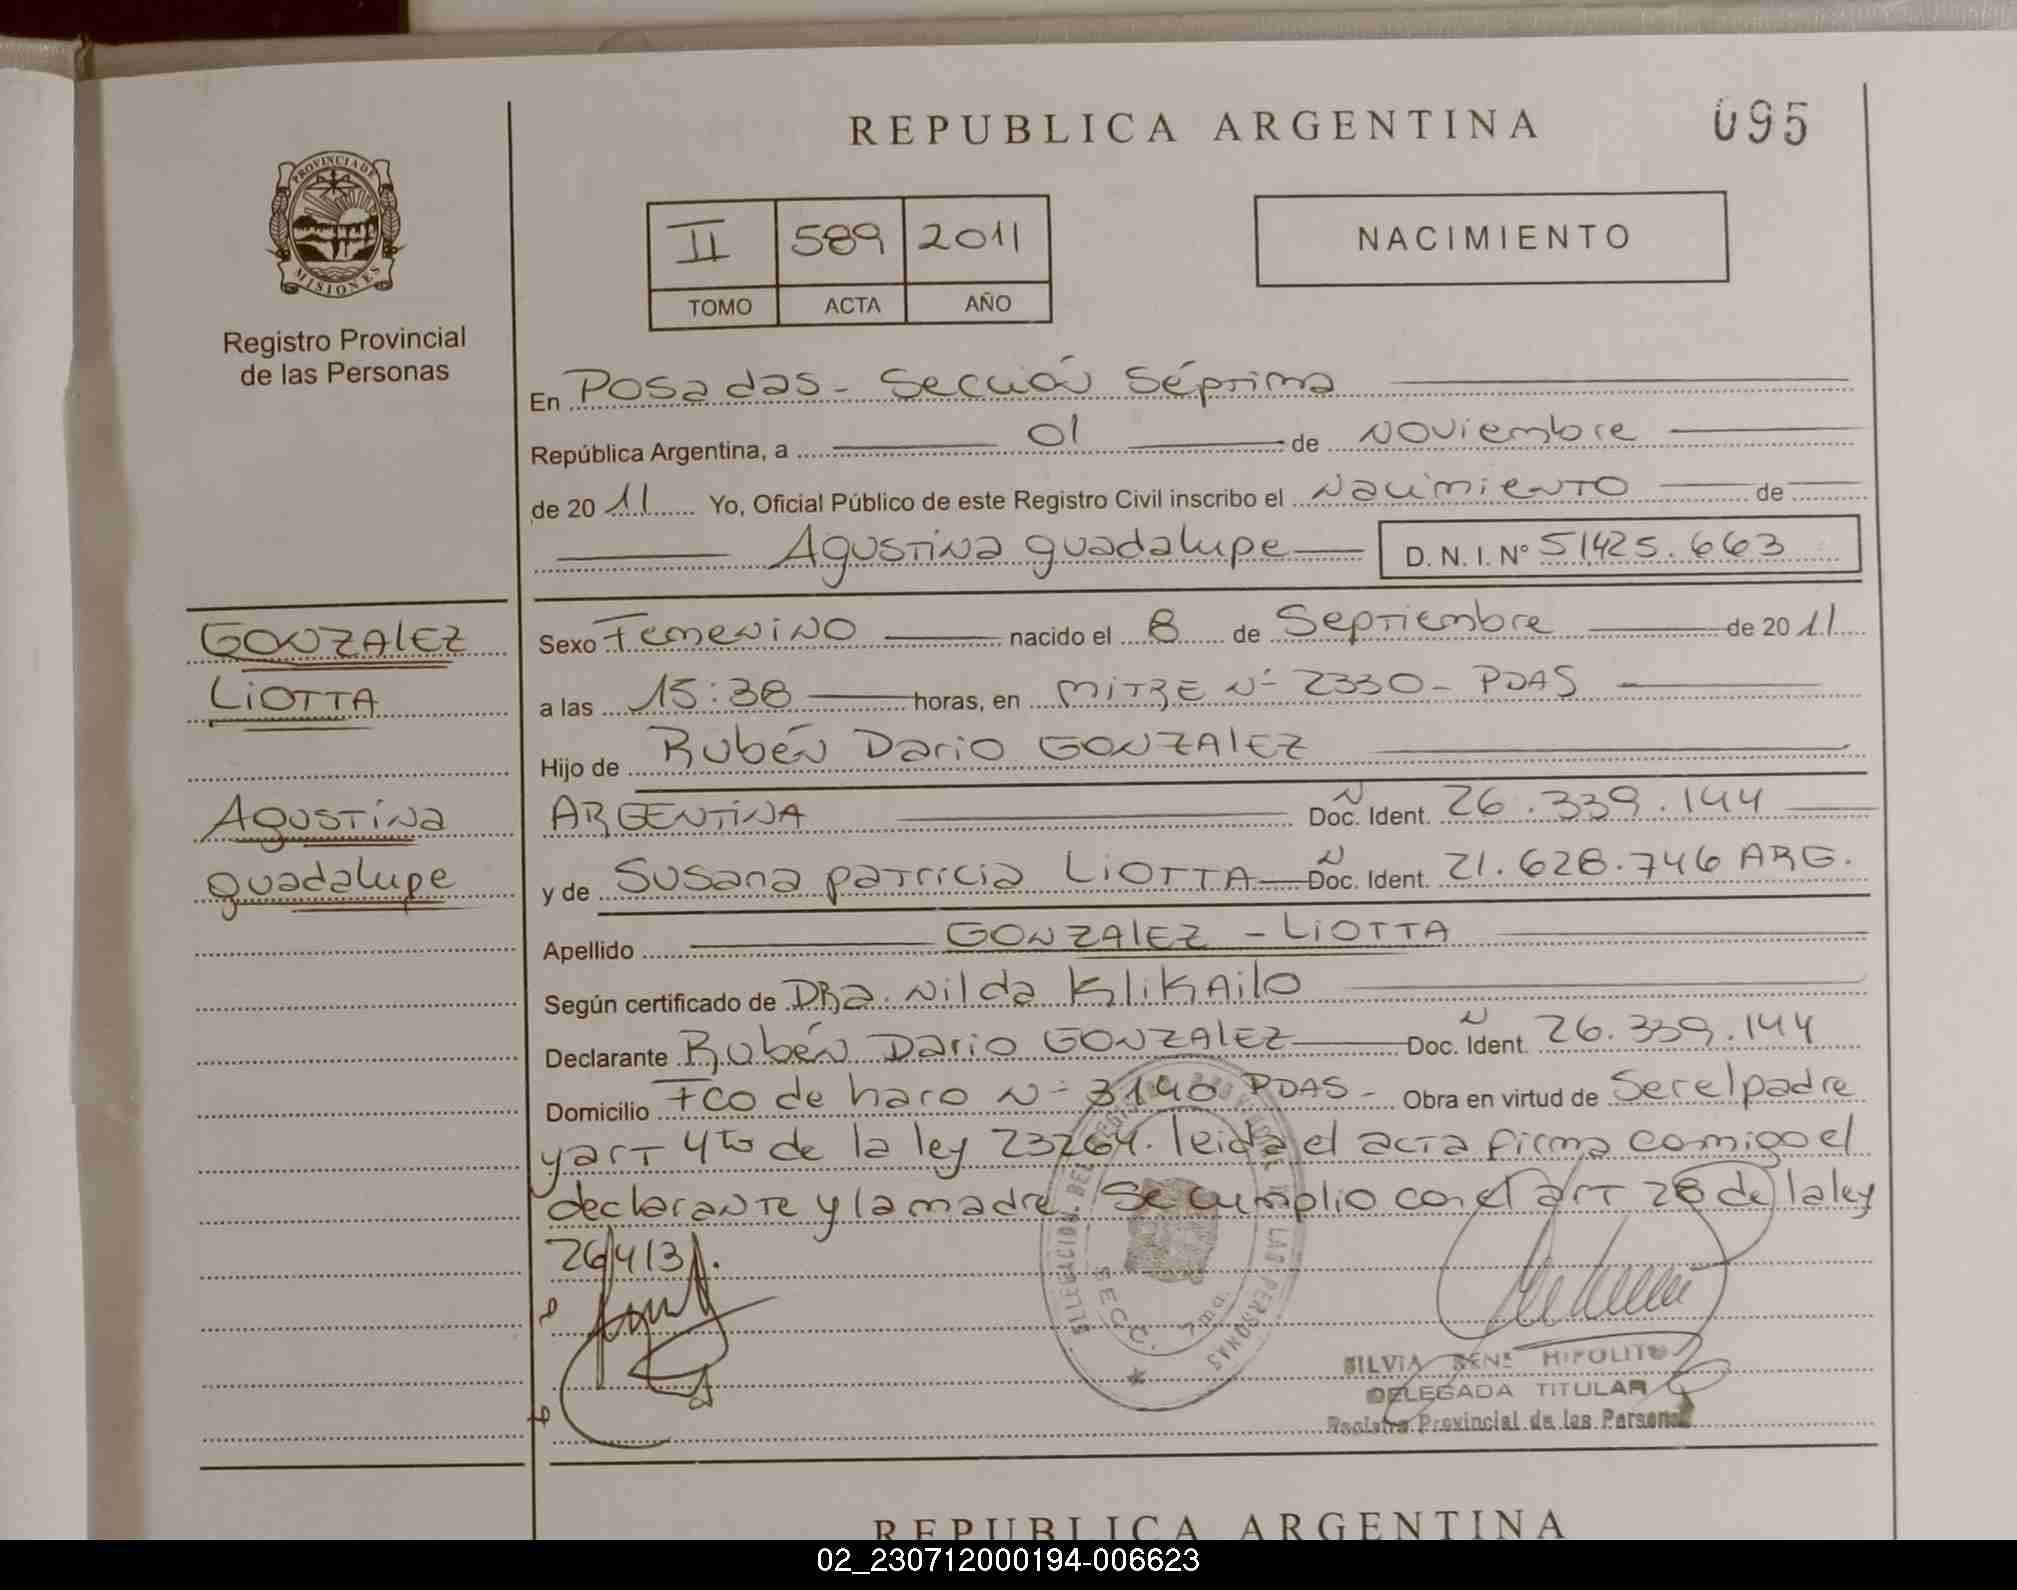 REPUBLICA ARGENTINA
095
PROVINCIA DE
MISIONES
Registro Provincial
de las Personas
II 589 2011
TOMO ACTA AÑO
NACIMIENTO
En Posadas - Sección Séptima
República Argentina, a 01 de Noviembre
de 2011 Yo, Oficial Público de este Registro Civil inscribo el Nacimiento de
Agustina guadalupe D. N. I. Nº 51425.663
GONZALEZ
LiOTTA
Agustina
guadalupe
Sexo Femenino nacido el 8 de Septiembre de 2011
a las 15:38 horas, en MITRE Nº 2330 - PDAS
Hijo de Rubén Dario GONZALEZ
ARGENTINA Doc. Ident. 26.339.144
y de Susana patricia LiOTTA Doc. Ident. 21.628.746 ARG.
Apellido GONZALEZ - LiOTTA
Según certificado de DRa. Nilda KliKAilo
Declarante Rubén Dario GONZALEZ Doc. Ident. 26.339.144
Domicilio Fco de haro Nº 3140 PDAS - Obra en virtud de Ser el padre
y art 4to de la ley 23264. leida el acta firma comigo el
declarante y la madre. Se cumplio con el art 28 de la ley
26413.
DELEGACION DEL REGISTRO PROVINCIAL DE LAS PERSONAS
SECC. 7ma.
SILVIA HIPOLITO
DELEGADA TITULAR
Registro Provincial de las Personas
REPUBLICA ARGENTINA
02_230712000194-006623